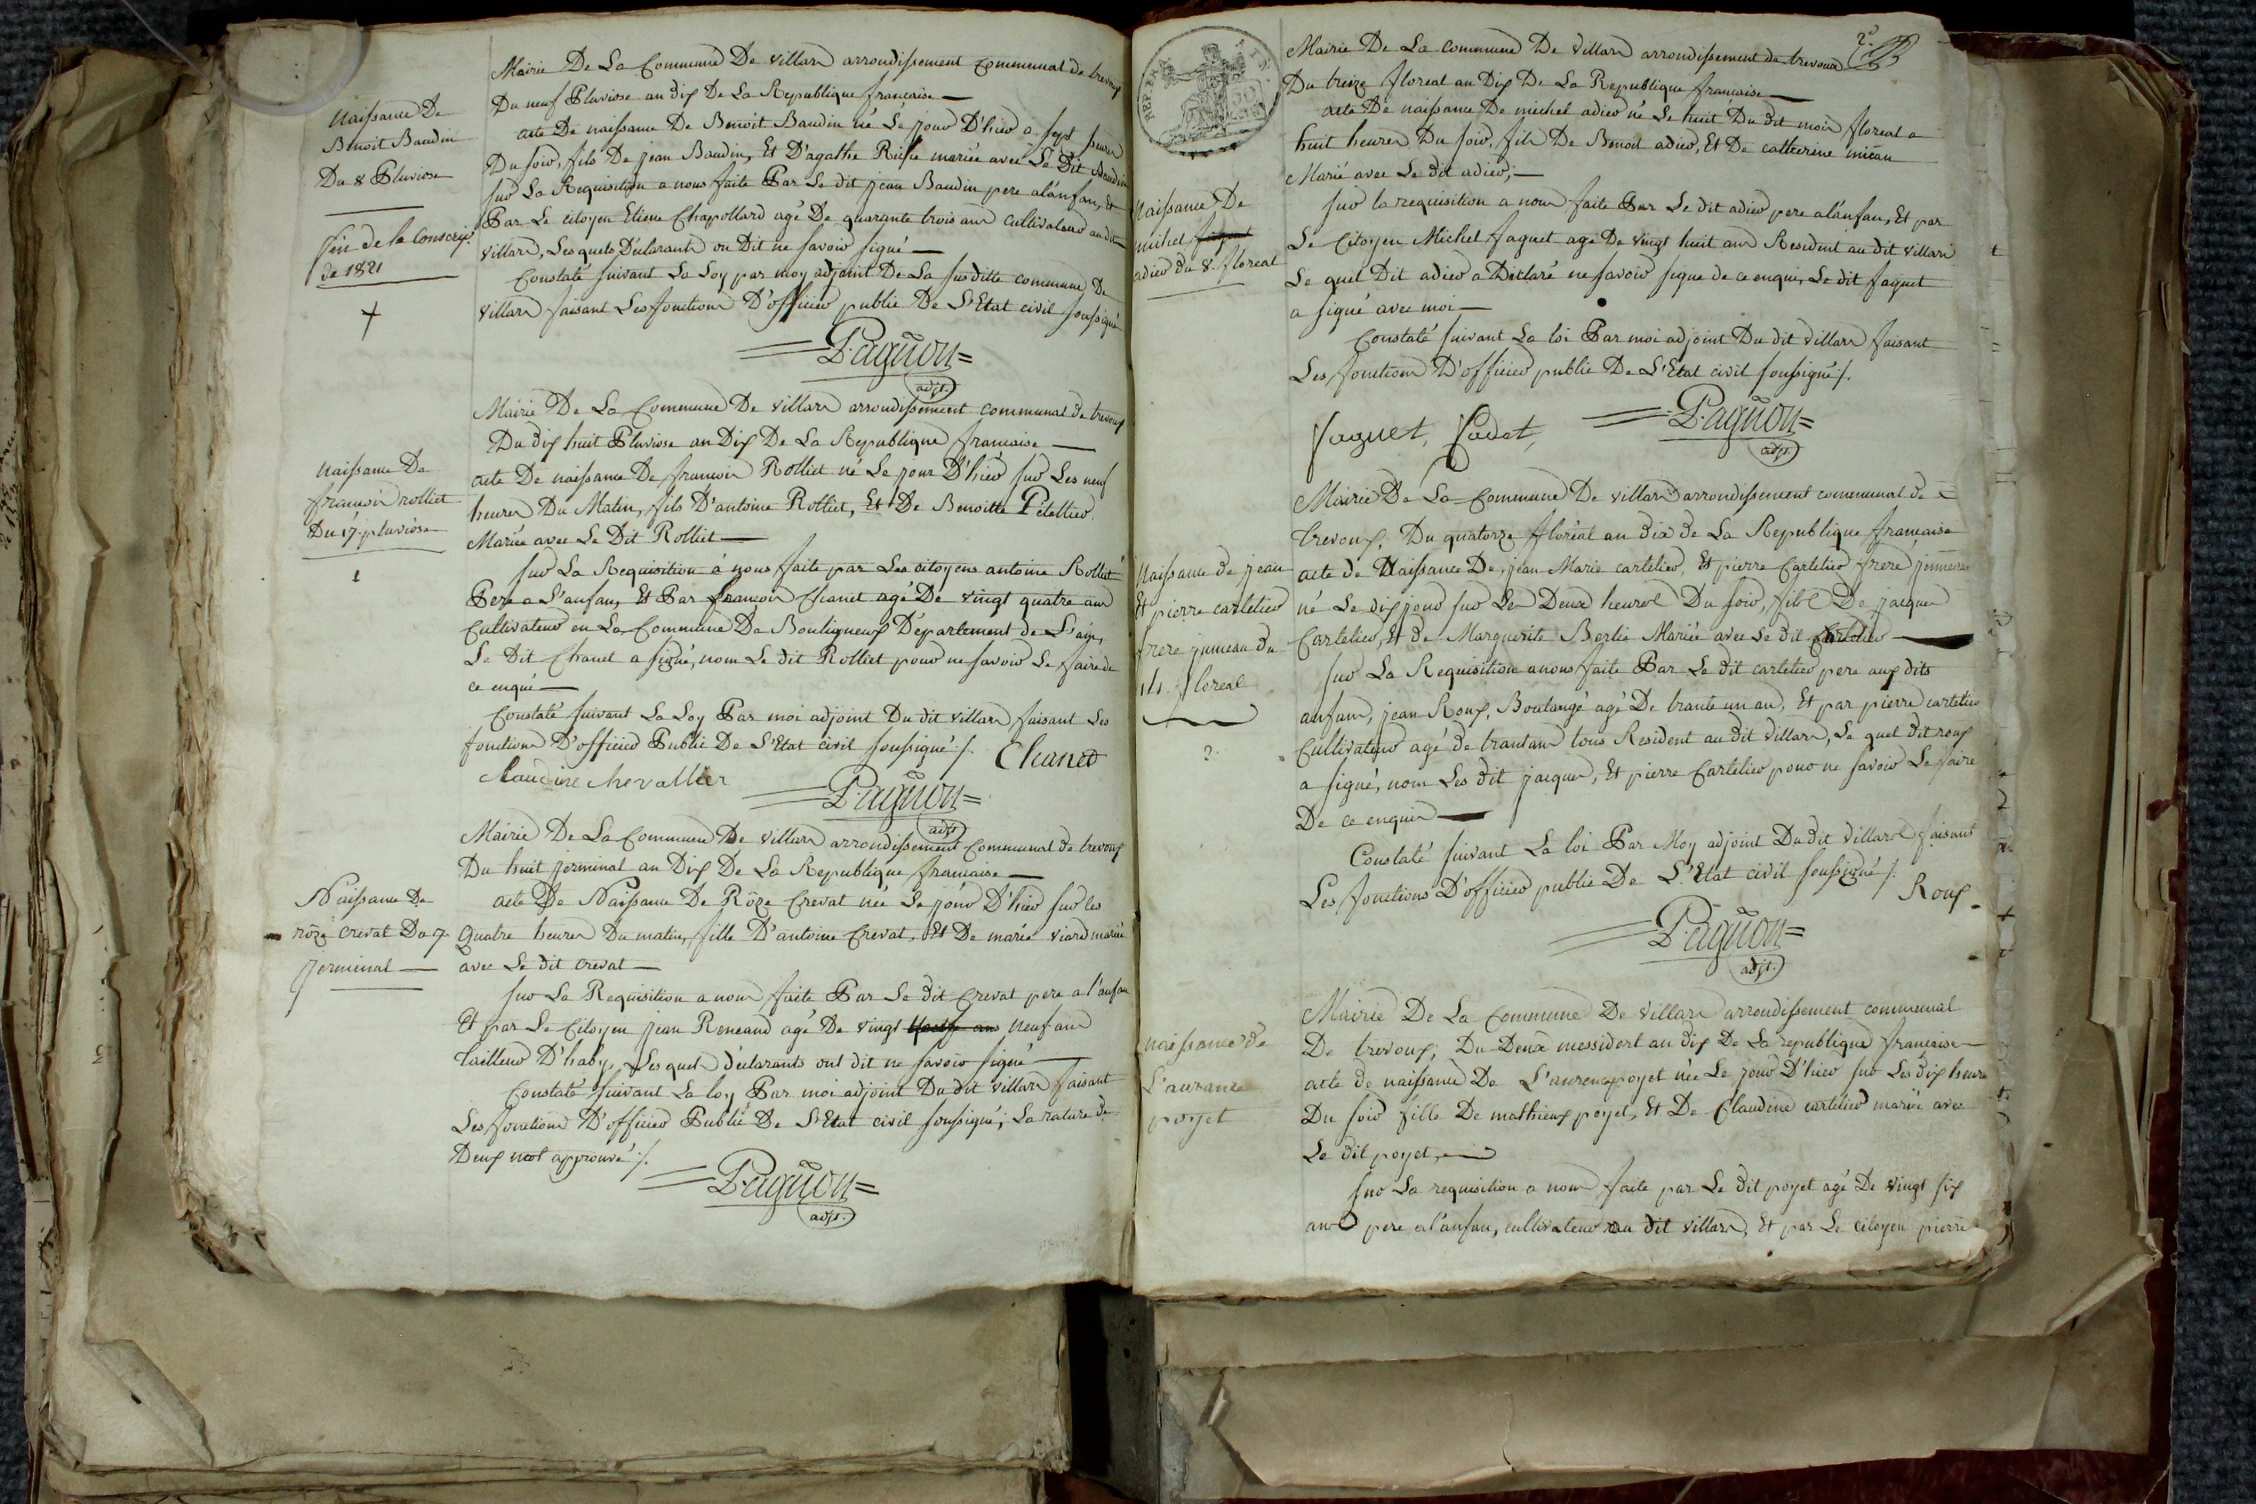 Naissance De
Benoit Baudin
Du 8 Pluviose
de la Conscript.
de 1821
Mairie De La Commune De villars arrondissement communal de trevoux
Du neuf Pluviose an dix De La Republique francaise
acte De naissance De Benoit Baudin né Le jour D'hier a sept heures
Du soir, fils De jean Baudin, Et D'agathe mariée avec Le Dit Baudin
sur La Requisition a nous faite Par Le dit jean Baudin pere a l'anfan, Et
Par Le citoyen Etiene Chapollard agé De quarante trois ans cultivateur au dit
villars, Lesquels Déclarants on Dit ne savoir signé
Constaté suivant La Loy par moy adjoint De La susditte commune De
villars faisant Les fonctions D'officier public De L'Etat civil soussigné
Pagnon
adjt.
Naissance De
francois rolliet
Du 17 pluviose
Mairie De La Commune De villars arrondissement communal de trevoux
Du dix huit Pluviose an Dix De La Republique francaise
acte De naissance De francois Rolliet né Le jour D'hier sur Les neuf
heures Du Matin, fils D'antoine Rolliet, Et De Benoitte Pelletier
Mariée avec Le Dit Rolliet
sur La Requisition à nous faite par Les citoyens antoine Rolliet
Pere a L'anfan, Et Par francois Chanet agé De vingt quatre ans
Cultivateur en La Commune De Bouligneux Département de L'ain,
Le Dit Chanet a signé, nom Le dit Rolliet pour ne savoir Le faire de
ce enquie
Constaté suivant La Loy Par moi adjoint Du dit villars faisant Les
fonctions D'officier Public De L'Etat civil soussigné ./. Chanet
Claudine chevallier
Pagnon
adjt
Naissance De
rôze crevat Du 7
jerminal
Mairie De La Commune De villars arrondissement Communal de trevoux
Du huit jerminal an Dix De La Republique francaise
acte De Naissance De Rôze Crevat née Le jour D'hier sur les
Quatre heures Du matin, fille D'antoine Crevat, Et De marie viard mariée
avec Le dit crevat
sur La Requisition a nous faite Par Le dit Crevat pere a l'anfan
Et par Le Citoyen jean Reneaud agé De vingt neuf ans
tailleur D'haby, Lesquels déclarants ont dit ne savoir signé
Constaté suivant La loy Par moi adjoint Du dit villars faisant
Les fonctions D'officier Public De L'Etat civil soussigné; La rature de
Deux mot approuvé ./.
Pagnon
adjt.
2e
Naissance De
mihel
adier du 8 floreal
Mairie De La commune De villars arrondissement de trevoux
Du treize floreal an Dix De La Republique francaise
acte De naissance De michel adier né Le huit Du dit mois floreal a
huit heures Du soir, fils De Benoit adier, Et De catherine
Marié avec Le dit adier,
sur la requisition a nous faite Par Le dit adier pere a l'anfan, Et par
Le Citoyen Michel faguet agé De vingt huit ans Resident au dit villars
Le quel Dit adier a Déclaré ne savoir signe de ce enquie, Le dit faguet
a signé avec moi
Constaté suivant La loi Par moi adjoint Du dit villars faisant
Les fonctions D'officier public De L'Etat civil soussigné ./.
faguet, Cadet,
Pagnon
adjt.
Naissance de jean
Et pierre cartelier
frere jumeau du
floreal
?
Mairie De La Commune De villars arrondissement communal de
trevoux, Du quatorze floréal an dix de La Republique francaise
acte de Naissance De jean Marie cartelier, Et pierre Cartelier frere
né Le dix jour sur Les Deux heures Du soir, fils De jacques
Cartelier, Et de Marguerite Berlie Mariée avec Le dit Cartelier
sur La Requisition a nous faite Par Le dit cartelier pere aux dits
anfans, jean Roux, Boulangé agé De trante un an, Et par pierre cartelier
Cultivateur agé de trantans tous Resident au dit villars, Le quel dit roux
a signé, nom Les dit jacques, Et pierre Cartelier pour ne savoir Le faire
De ce enquis
Constaté suivant La loi Par Moy adjoint Du dit villars faisant
Les fonctions D'officier public De L'Etat civil soussigné ./. Roux
Pagnon
adjt.
naissance de
L'aurance
poyet
Mairie De La Commune De villars arrondissement communal
De trevoux, Du Deux messidort an dix De La republique francaise
acte de naissance De L'aurence poyet née Le jour D'hier sur Les dix heure
Du soir fille De mathieux poyet, Et De Claudine cartelier mariée avec
Le dit poyet,
sur La requisition a nous faite par Le dit poyet agé De vingt six
ans pere a l'anfan, cultivateur au dit villars, Et par Le citoyen pierre